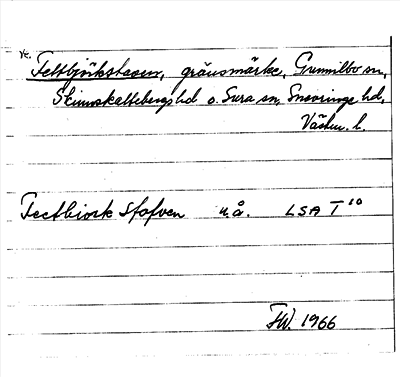 Ve.
Fettbjörkstaven, gränsmärke, Gunnilbo sn,
Skinnskattebergs hd o. Sura sn, Snevringe hd,
Västm. l.
Feetbiork Stafven u.å. LSA T 10
FW. 1966